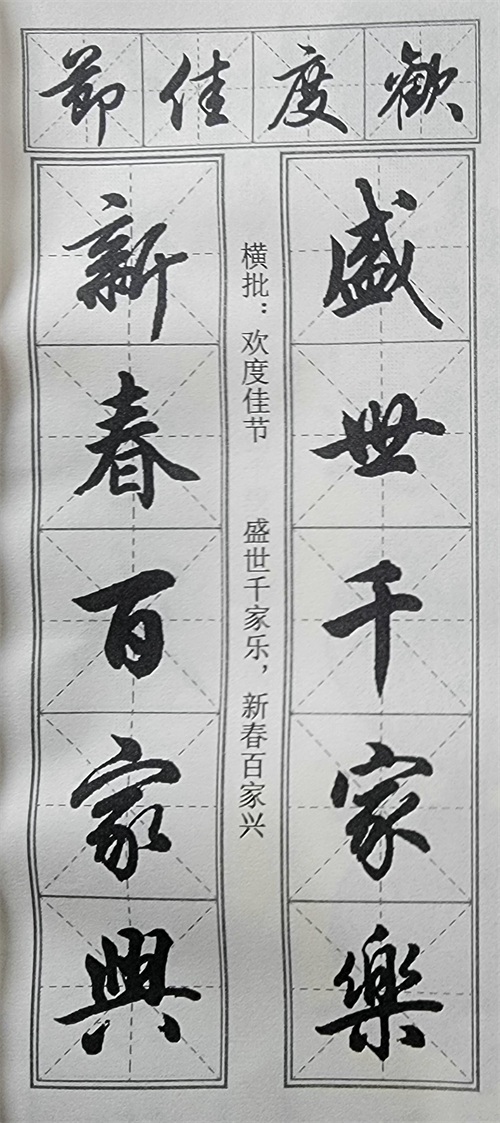 歡度佳節
盛世千家樂
横批：欢度佳节　盛世千家乐，新春百家兴
新春百家興